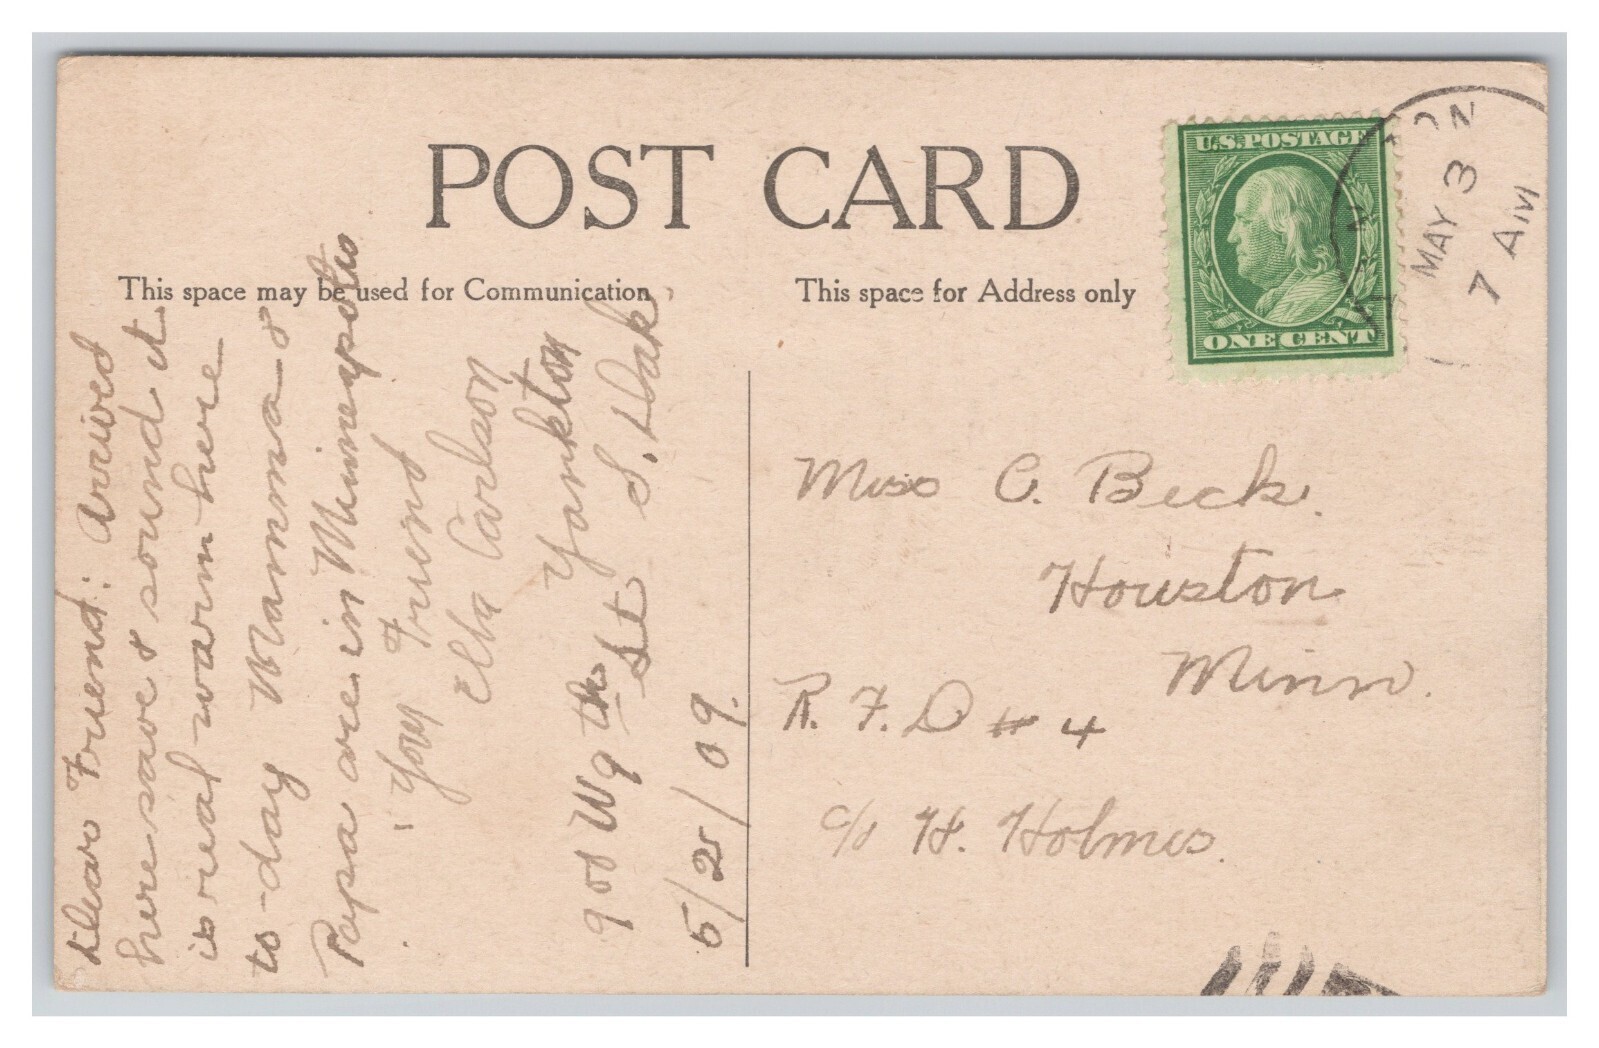 POST CARD
This space may be used for Communication
This space for Address only
U.S. POSTAGE
ONE CENT
MAY 3
7 AM
Dear Friend: Arrived
here save & sound it
is real warm here
to-day Mamma &
Papa are in Minneapolis
Your Friend
Ella Carlson
Yankton
S. Dak
901 W 9th St
5/2/09.
Miss C. Beck.
Houston
Minn.
R. F. D # 4
c/o H. Holmes.